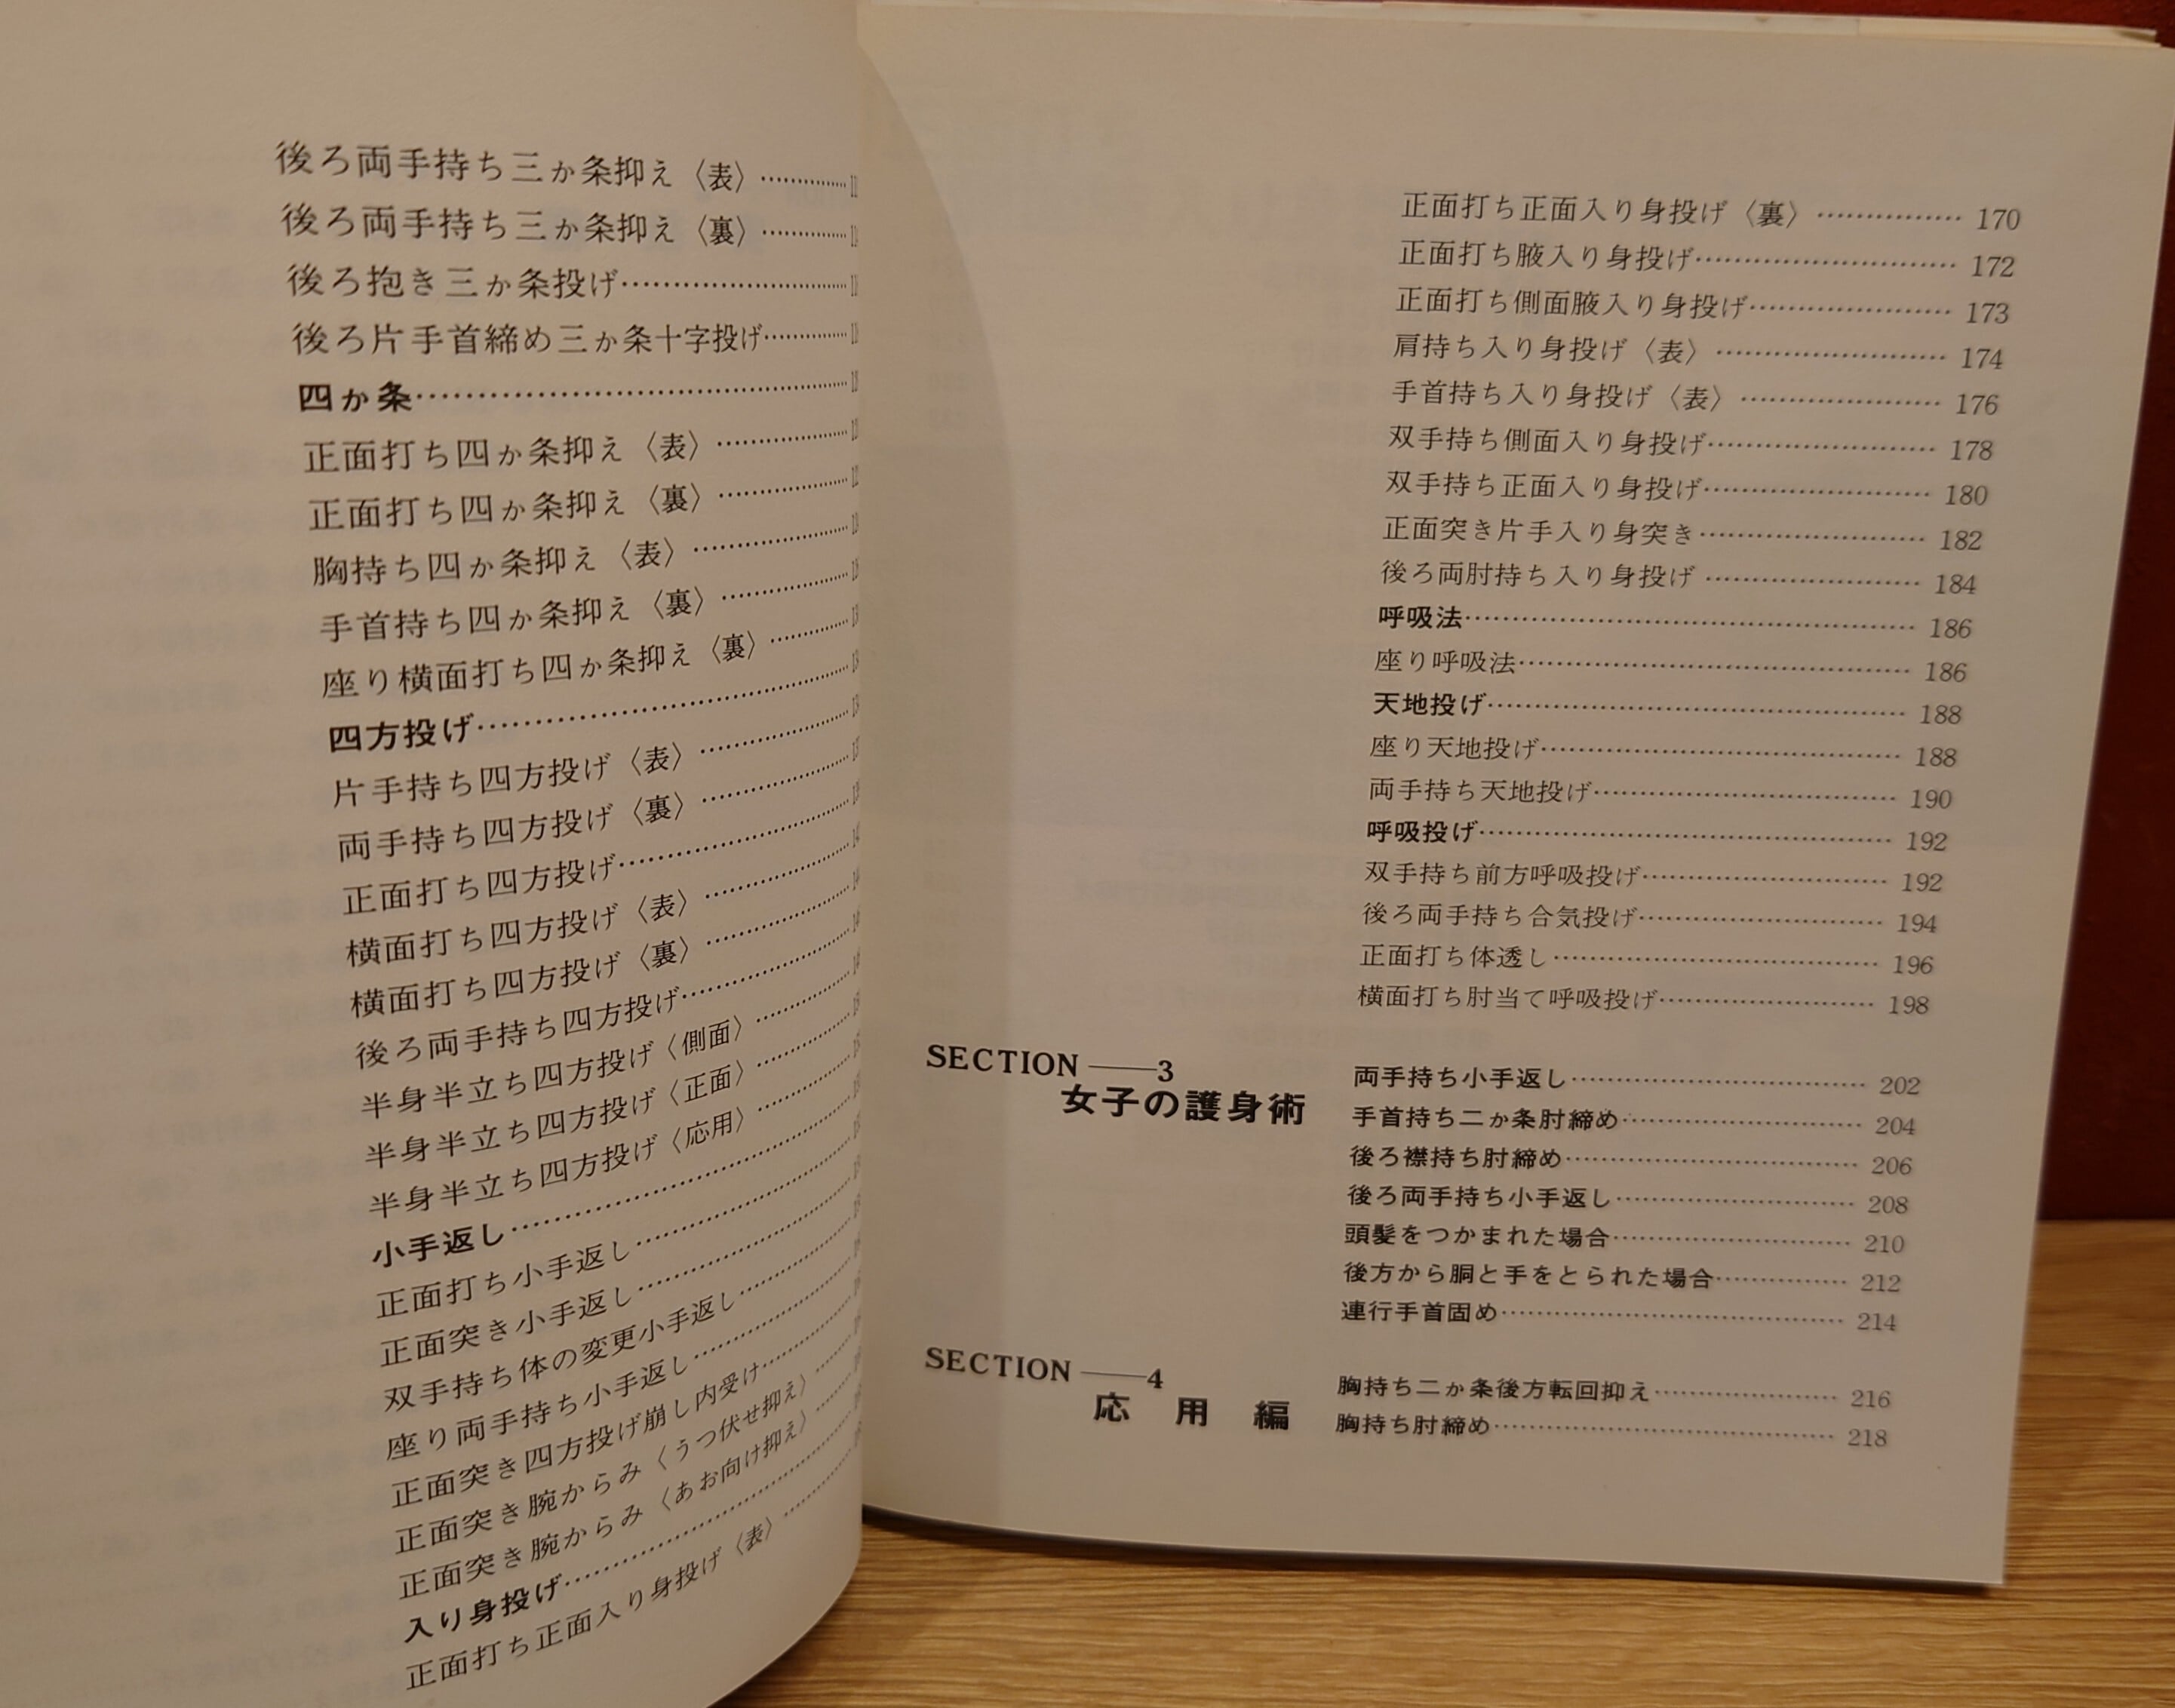 後ろ両手持ち三か条抑え〈表〉……………
後ろ両手持ち三か条抑え〈裏〉……………
後ろ抱き三か条投げ……………
後ろ片手首締め三か条十字投げ……………
四か条……………
正面打ち四か条抑え〈表〉……………
正面打ち四か条抑え〈裏〉……………
胸持ち四か条抑え〈表〉……………
手首持ち四か条抑え〈裏〉……………
座り横面打ち四か条抑え〈裏〉……………
四方投げ……………
片手持ち四方投げ〈表〉……………
両手持ち四方投げ〈裏〉……………
正面打ち四方投げ……………
横面打ち四方投げ〈表〉……………
横面打ち四方投げ〈裏〉……………
後ろ両手持ち四方投げ……………
半身半立ち四方投げ〈側面〉……………
半身半立ち四方投げ〈正面〉……………
半身半立ち四方投げ〈応用〉……………
小手返し……………
正面打ち小手返し……………
正面突き小手返し……………
双手持ち体の変更小手返し……………
座り両手持ち小手返し……………
正面突き四方投げ崩し内受け……………
正面突き腕からみ〈うつ伏せ抑え〉……………
正面突き腕からみ〈あお向け抑え〉……………
入り身投げ……………
正面打ち正面入り身投げ〈表〉……………
正面打ち正面入り身投げ〈裏〉…………… 170
正面打ち腋入り身投げ…………… 172
正面打ち側面腋入り身投げ…………… 173
肩持ち入り身投げ〈表〉…………… 174
手首持ち入り身投げ〈表〉…………… 176
双手持ち側面入り身投げ…………… 178
双手持ち正面入り身投げ…………… 180
正面突き片手入り身突き…………… 182
後ろ両肘持ち入り身投げ…………… 184
呼吸法…………… 186
座り呼吸法…………… 186
天地投げ…………… 188
座り天地投げ…………… 188
両手持ち天地投げ…………… 190
呼吸投げ…………… 192
双手持ち前方呼吸投げ…………… 192
後ろ両手持ち合気投げ…………… 194
正面打ち体透し…………… 196
横面打ち肘当て呼吸投げ…………… 198
SECTION——3
女子の護身術
両手持ち小手返し…………… 202
手首持ち二か条肘締め…………… 204
後ろ襟持ち肘締め…………… 206
後ろ両手持ち小手返し…………… 208
頭髪をつかまれた場合…………… 210
後方から胴と手をとられた場合…………… 212
連行手首固め…………… 214
SECTION——4
応用編
胸持ち二か条後方転回抑え…………… 216
胸持ち肘締め…………… 218